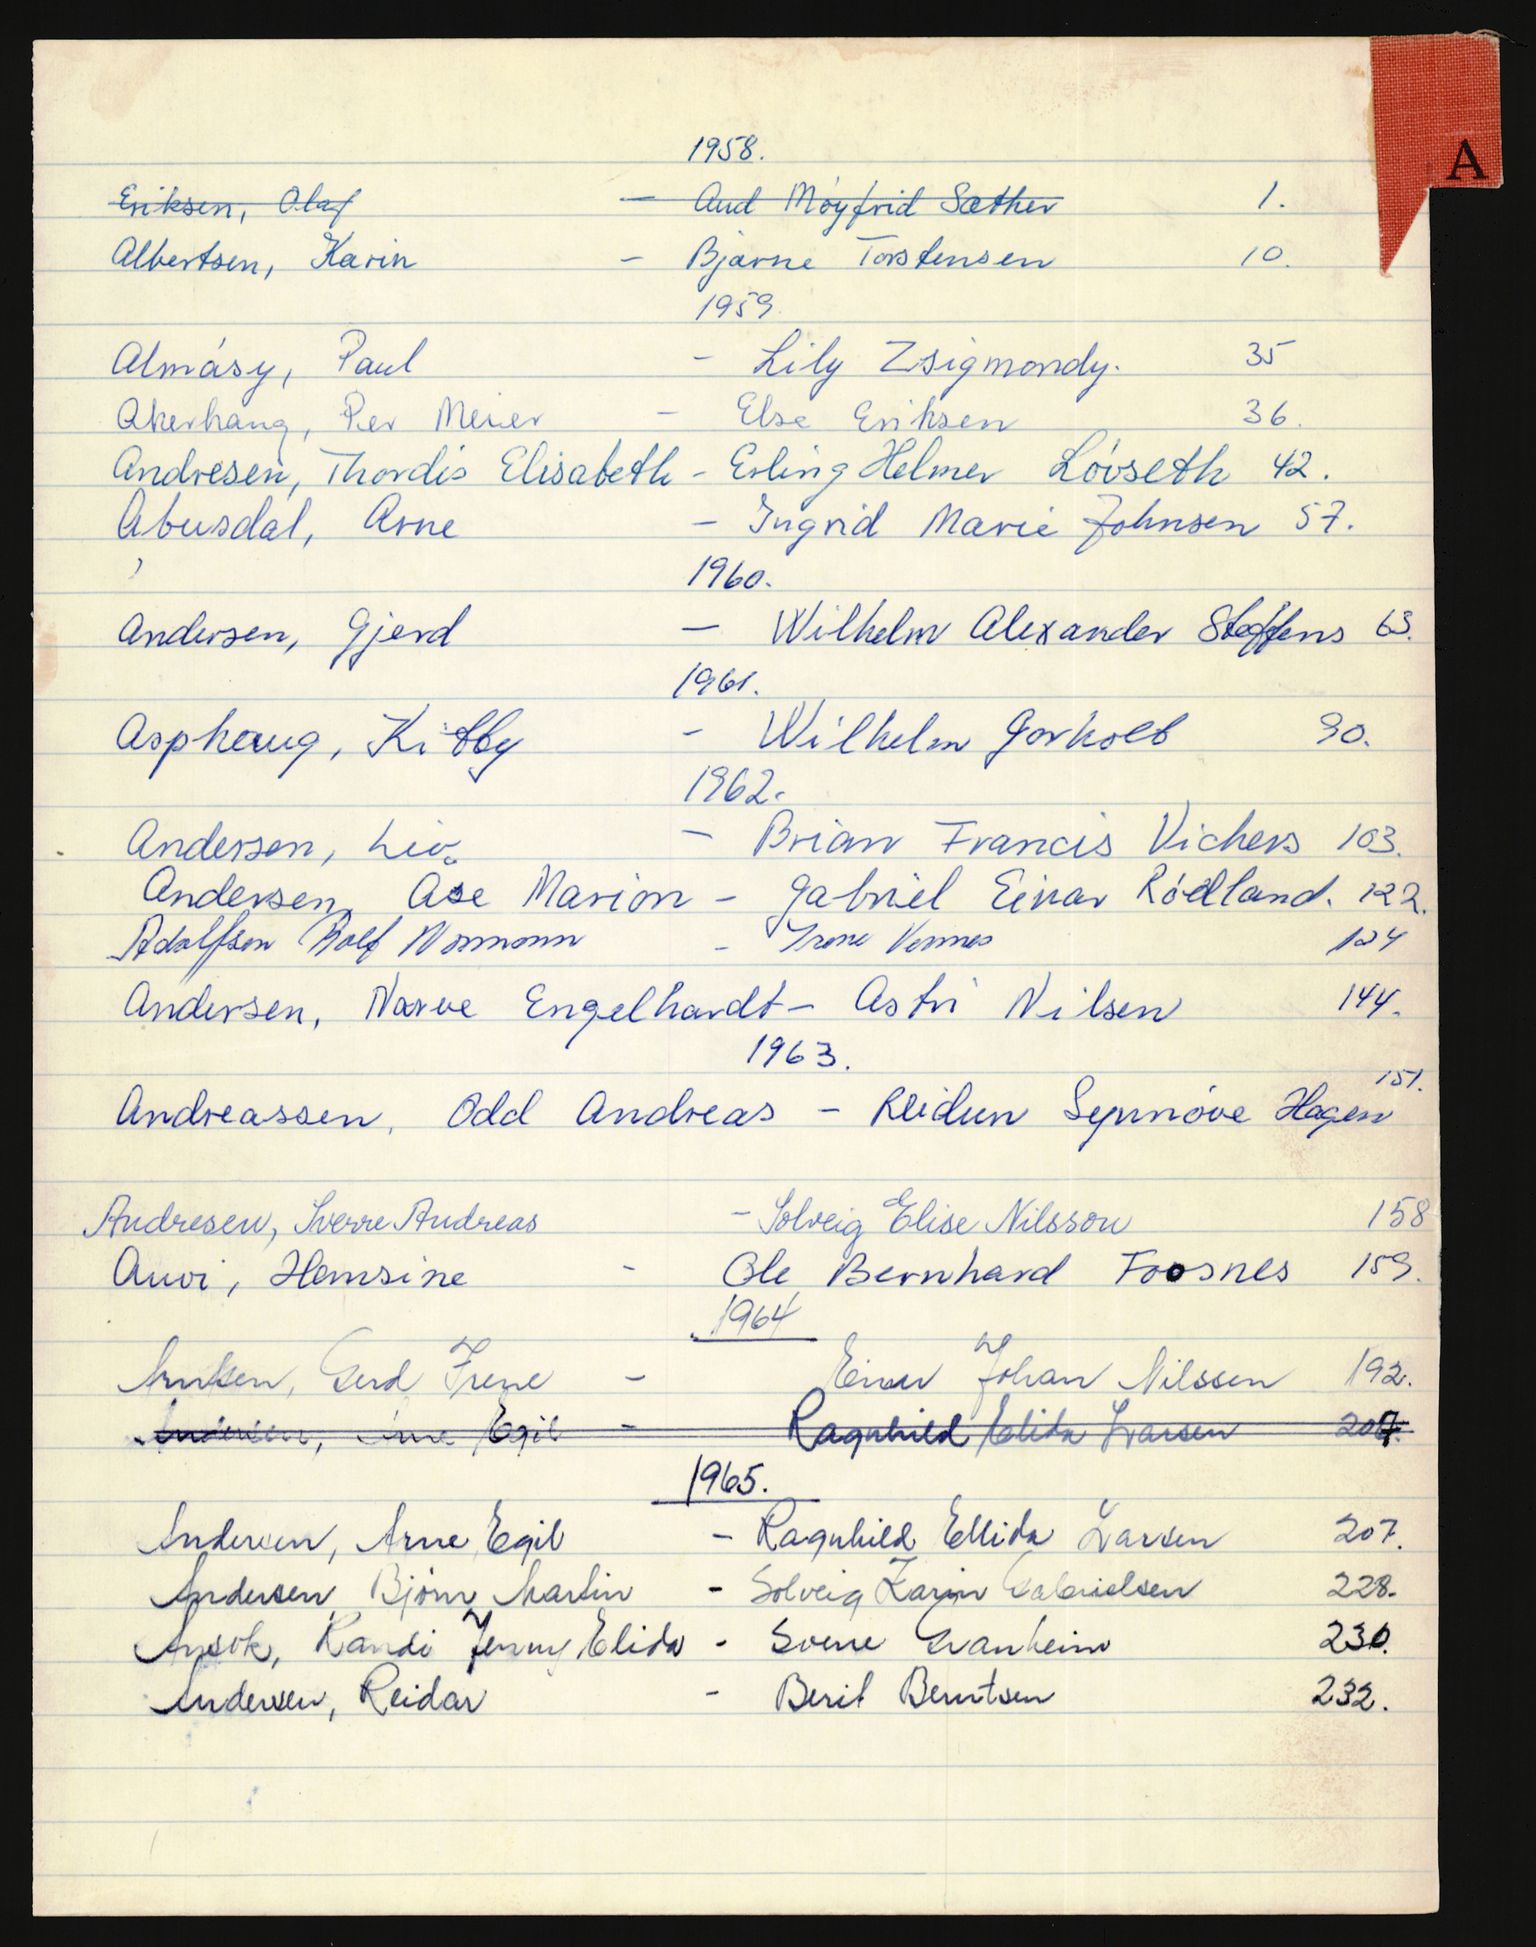 A
1958.
Eriksen, Olaf - Aud Møyfrid Sæther 1.
Albertsen, Karin - Bjarne Torstensen 10.
1959
Almásy, Paul - Lily Zsigmondy. 35
Akerhaug, Per Meier - Else Eriksen 36.
Andresen, Thordis Elisabeth - Erling Helmer Lóvseth 42.
Abusdal, Arne - Ingrid Marie Johnsen 57.
1960.
Andersen, Gjerd - Wilhelm Alexander Steffens 63.
1961.
Asphaug, Kitty - Wilhelm 90.
1962.
Andersen, Liv - Brian Francis Vickers 103.
Andersen, Åse Marion - Gabriel EinarRódland. 122.
Adolfsen Rolf Normann - Irene Vennes 124
Andersen, Narve Engelhardt - Astri Nilsen 144.
1963.
151.
Andreassen, Odd Andreas - Reidun Synnóve Hagen
Andresen, Sverre Andreas - Solveig Elise Nilsson 158
Auvi, Hansine - Ole Bernhard Foosnes 159.
1964
Arntsen, Gerd Irene - Einar Johan Nilssen 192.
Andersen, Arne Egil - Ragnhild Elida Larsen 207.
1965.
Andersen, Arne Egil - Ragnhild Ellida Larsen 207.
Andersen Bjørn Martin - Solveig Karin Gabrielsen 228.
Ansok, Randi Jenny Elida - Sverre Svanheim 230.
Andersen, Reidar - Berit Berntsen 232.